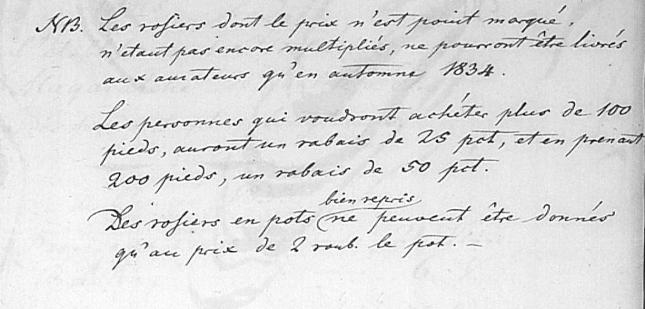 NB. Les rosiers dont le prix n'est point marqué,
n'etant pas encore multipliés, ne pourront être livrés
aux amateurs qu'en automne 1834.
Les personnes qui voudront achéter plus de 100
pieds, auront un rabais de 25 pct, et en prenant
200 pieds, un rabais de 50 pct.
bien repris
Des rosiers en pots ne peuvent être donnés
qu'au prix de 2 roub. le pot. —